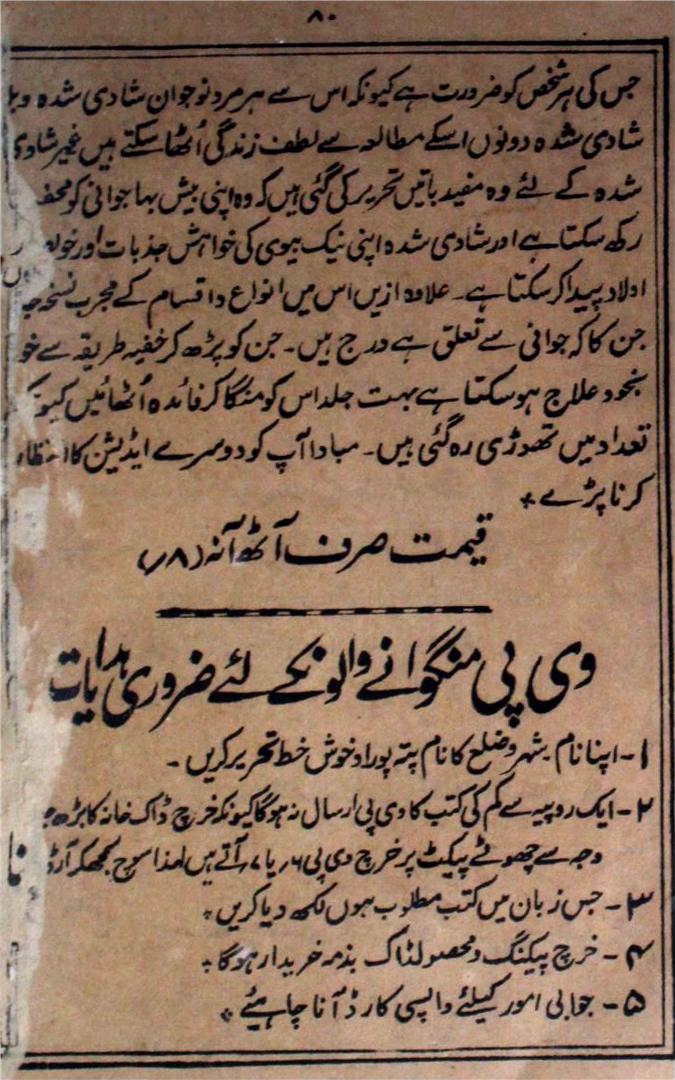 ۸۰
جس کی ہر شخص کو ضرورت ہے کیونکہ اس سے ہر مرد نوجوان شادی شدہ و
شادی شدہ دونوں اسکے مطالعہ سے لطف زندگی اُٹھا سکتے ہیں غیر شادی
شدہ کے لئے وہ مفید باتیں تحریر کی گئی ہیں کہ وہ اپنی بیش بہا جوانی کو
رکھ سکتا ہے اور شادی شدہ اپنی نیک بیوی کی خواہش جذبات اور
اولاد پیدا کر سکتا ہے۔ علاوہ ازیں اس میں انواع و اقسام کے مجرب نسخہ
جن کا کہ جوانی سے تعلق ہے درج ہیں۔ جن کو پڑھ کر خفیہ طریقہ سے خو
بخود علاج ہو سکتا ہے بہت جلد اس کو منگا کر فائدہ اُٹھائیں
تعداد میں تھوڑی رہ گئی ہیں۔ مبادا آپ کو دوسرے ایڈیشن کا انتظار
کرنا پڑے *
قیمت صرف آٹھ آنہ (۸ر)
وی پی منگوانے والونکے لئے ضروری ہدایات
۱- اپنا نام شہر و ضلع کا نام پتہ پورا و خوش خط تحریر کریں۔
۲- ایک روپیہ سے کم کی کتب کا وی پی ارسال نہ ہوگا کیونکہ خرچ ڈاک خانہ کا بڑھ
وجہ سے چھوٹے پیکٹ پر خرچ وی پی ۶ر یا ۷ر آتے ہیں لہذا سوچ سمجھکر آرڈ
۳- جس زبان میں کتب مطلوب ہوں لکھ دیا کریں *
۴- خرچ پیکنگ و محصولڈاک بذمہ خریدار ہوگا *
۵- جوابی امور کیلئے واپسی کارڈ آنا چاہیئے *